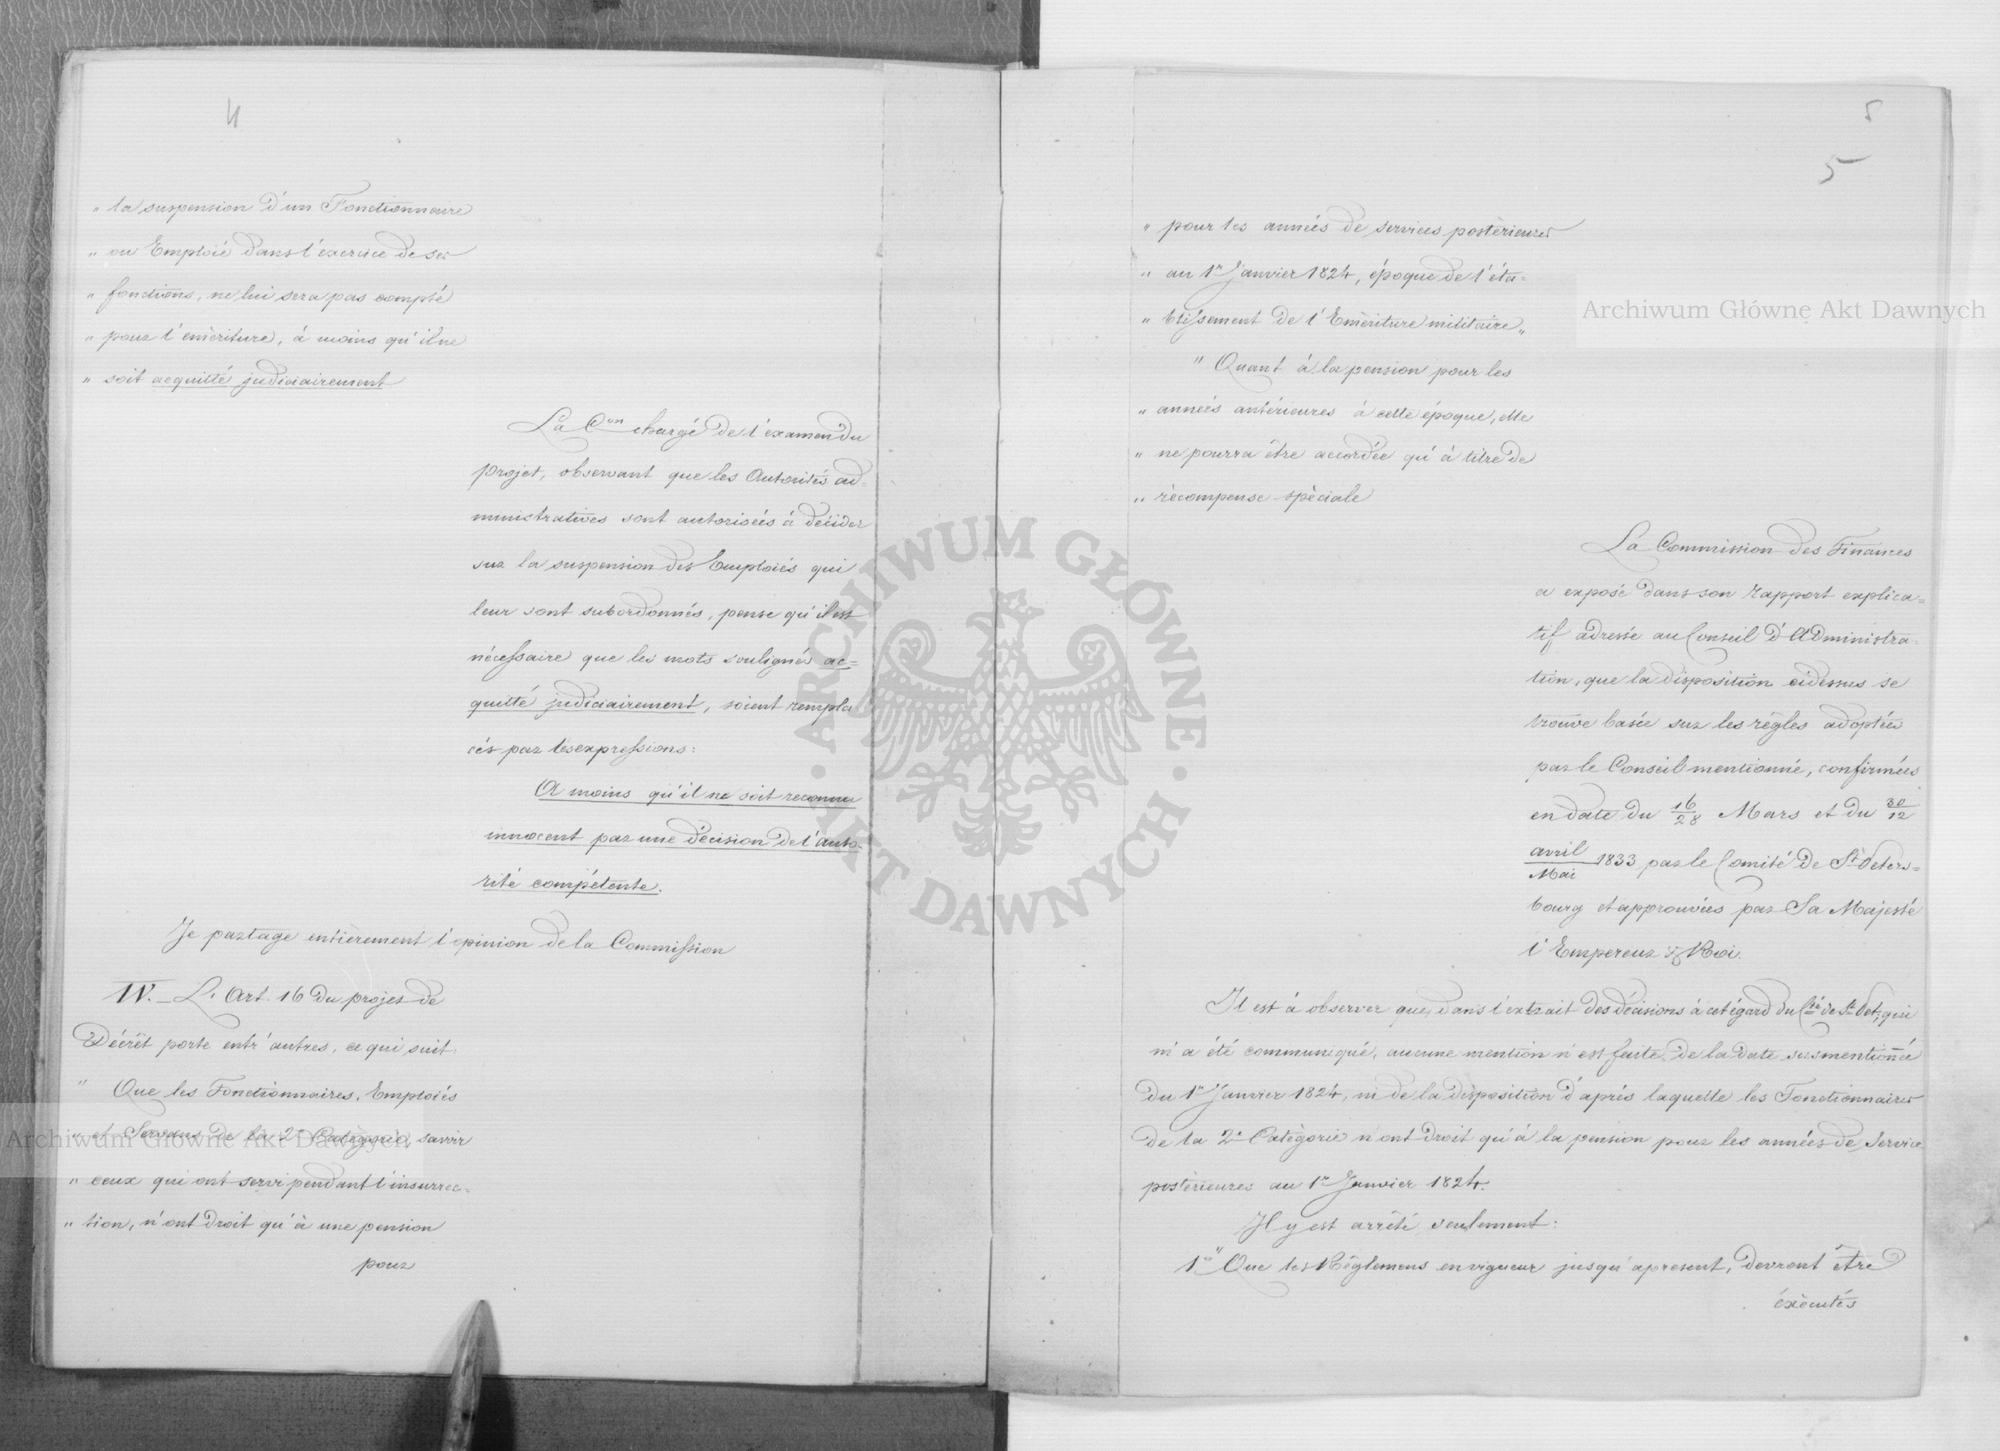 4
„ la suspension d'un Fonctionnaire
„ ou Emploié dans l'exercice de ses
„ fonctions, ne lui sera pas compté
„ pour l'emèriture, à moins qu'il ne
„ soit acquitté judiciairement
La Con chargé de l'examen du
projet, observant que les Autorités ad=
ministratives sont autorisées à décider
sur la suspension des Emploiés qui
leur sont subordonnés, pense qu'il est
nécessaire que les mots soulignés ac=
quitté judiciairement, soient rempla
cés par les expressions:
A moins qu'il ne soit reconnu
innocent par une décision de l'auto-
rité compétente.
Je partage entièrement l'opinion de la Commission
IV. _ L'Art. 16 du projet de
Décrèt porte entr'autres, ce qui suit:
„ Que les Fonctionnaires, Emploiés
„ et Servans de la 2e Catégorie, savoir
„ ceux qui ont servi pendant l'insurrec=
„ tion, n'ont droit qu'à une pension
pour
5
5
„ pour les années de services postèrieures
„ au 1r Janvier 1824, époque de l'éta=
„ blissement de l'Emèriture militaire„
„ Quant à la pension pour les
„ années antérieures à cette époque, elle
„ ne pourra être accordée qu'à titre de
„ rècompense spèciale
La Commission des Finances
a exposé dans son rapport explica=
tif adressé au Conseil d'Administra-
tion, que la disposition cidessus se
trouve basée sur les règles adoptées
par le Conseil mentionné, confirmées
en date du 16/28 Mars et du 30/12
avril/Mai 1833 par le Comité de St Peters=
bourg et approuvées par Sa Majesté
l'Empereur & Roi.
Il est à observer que, dans l'extrait des décisions à cet égard du Cté de St Pet; qui
m'a été communiqué, aucune mention n'est faite de la date susmentionnée
du 1r Janvier 1824, ni de la disposition d'après laquelle les Fonctionnaires
de la 2e Catègorie n'ont droit qu'à la pension pour les années de Service
postèrieures au 1r Janvier 1824.
Il y est arrêté seulement:
1o Que les Règlemens en vigueur jusqu'apresent, devront être
éxècutés
Archiwum Główne Akt Dawnych
Archiwum Główne Akt Dawnych
ARCHIWUM GŁÓWNE · AKT DAWNYCH ·